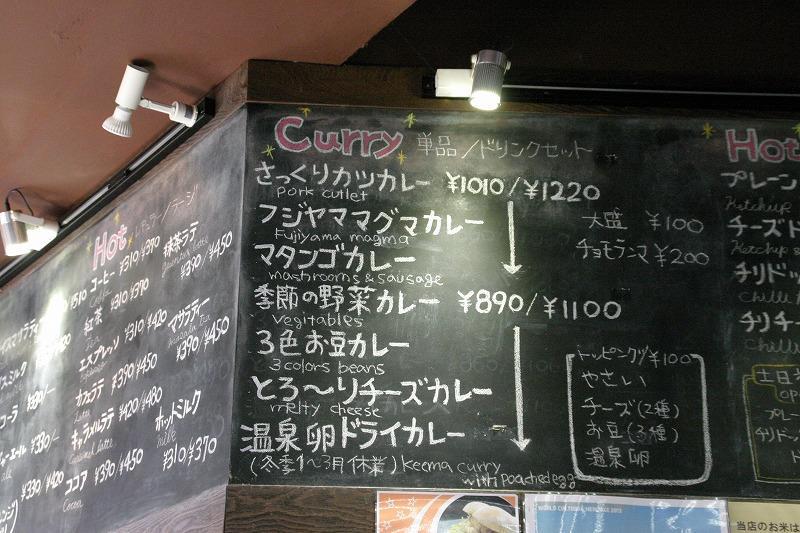 Curry 単品/ドリンクセット
さっくりカツカレー ¥1010/¥1220
pork cutlet
フジヤママグマカレー
Fujiyama magma
マタンゴカレー
mashrooms & sausage
季節の野菜カレー ¥890/¥1100
Vegitables
3色お豆カレー
3 colors beans
とろ〜りチーズカレー
melty cheese
温泉卵ドライカレー
(冬季1〜3月休業) Keema curry
with poached egg
大盛 ¥100
チョモランマ ¥200
トッピング ¥100
やさい
チーズ(2種)
お豆(3種)
温泉卵
Hot レギュラー/ラージ
コーヒー ¥310 ¥390
紅茶 ¥310 ¥370
Tea
エスプレッソ ¥310 ¥420
カフェラテ ¥390 ¥450
Latte
キャラメルラテ ¥420 ¥480
ココア ¥390/¥450
Cocoa
抹茶ラテ
¥390/¥450
マサラティー
¥390/¥450
ホットミルク
milk
¥310/¥370
Hot
プレーン
Ketchup
チーズド
Ketchup
チリドッ
Chilli
チリチー
Chilli
土日
プレー
チリドッ
WORLD CULTURAL HERITAGE 2013
当店のお米は